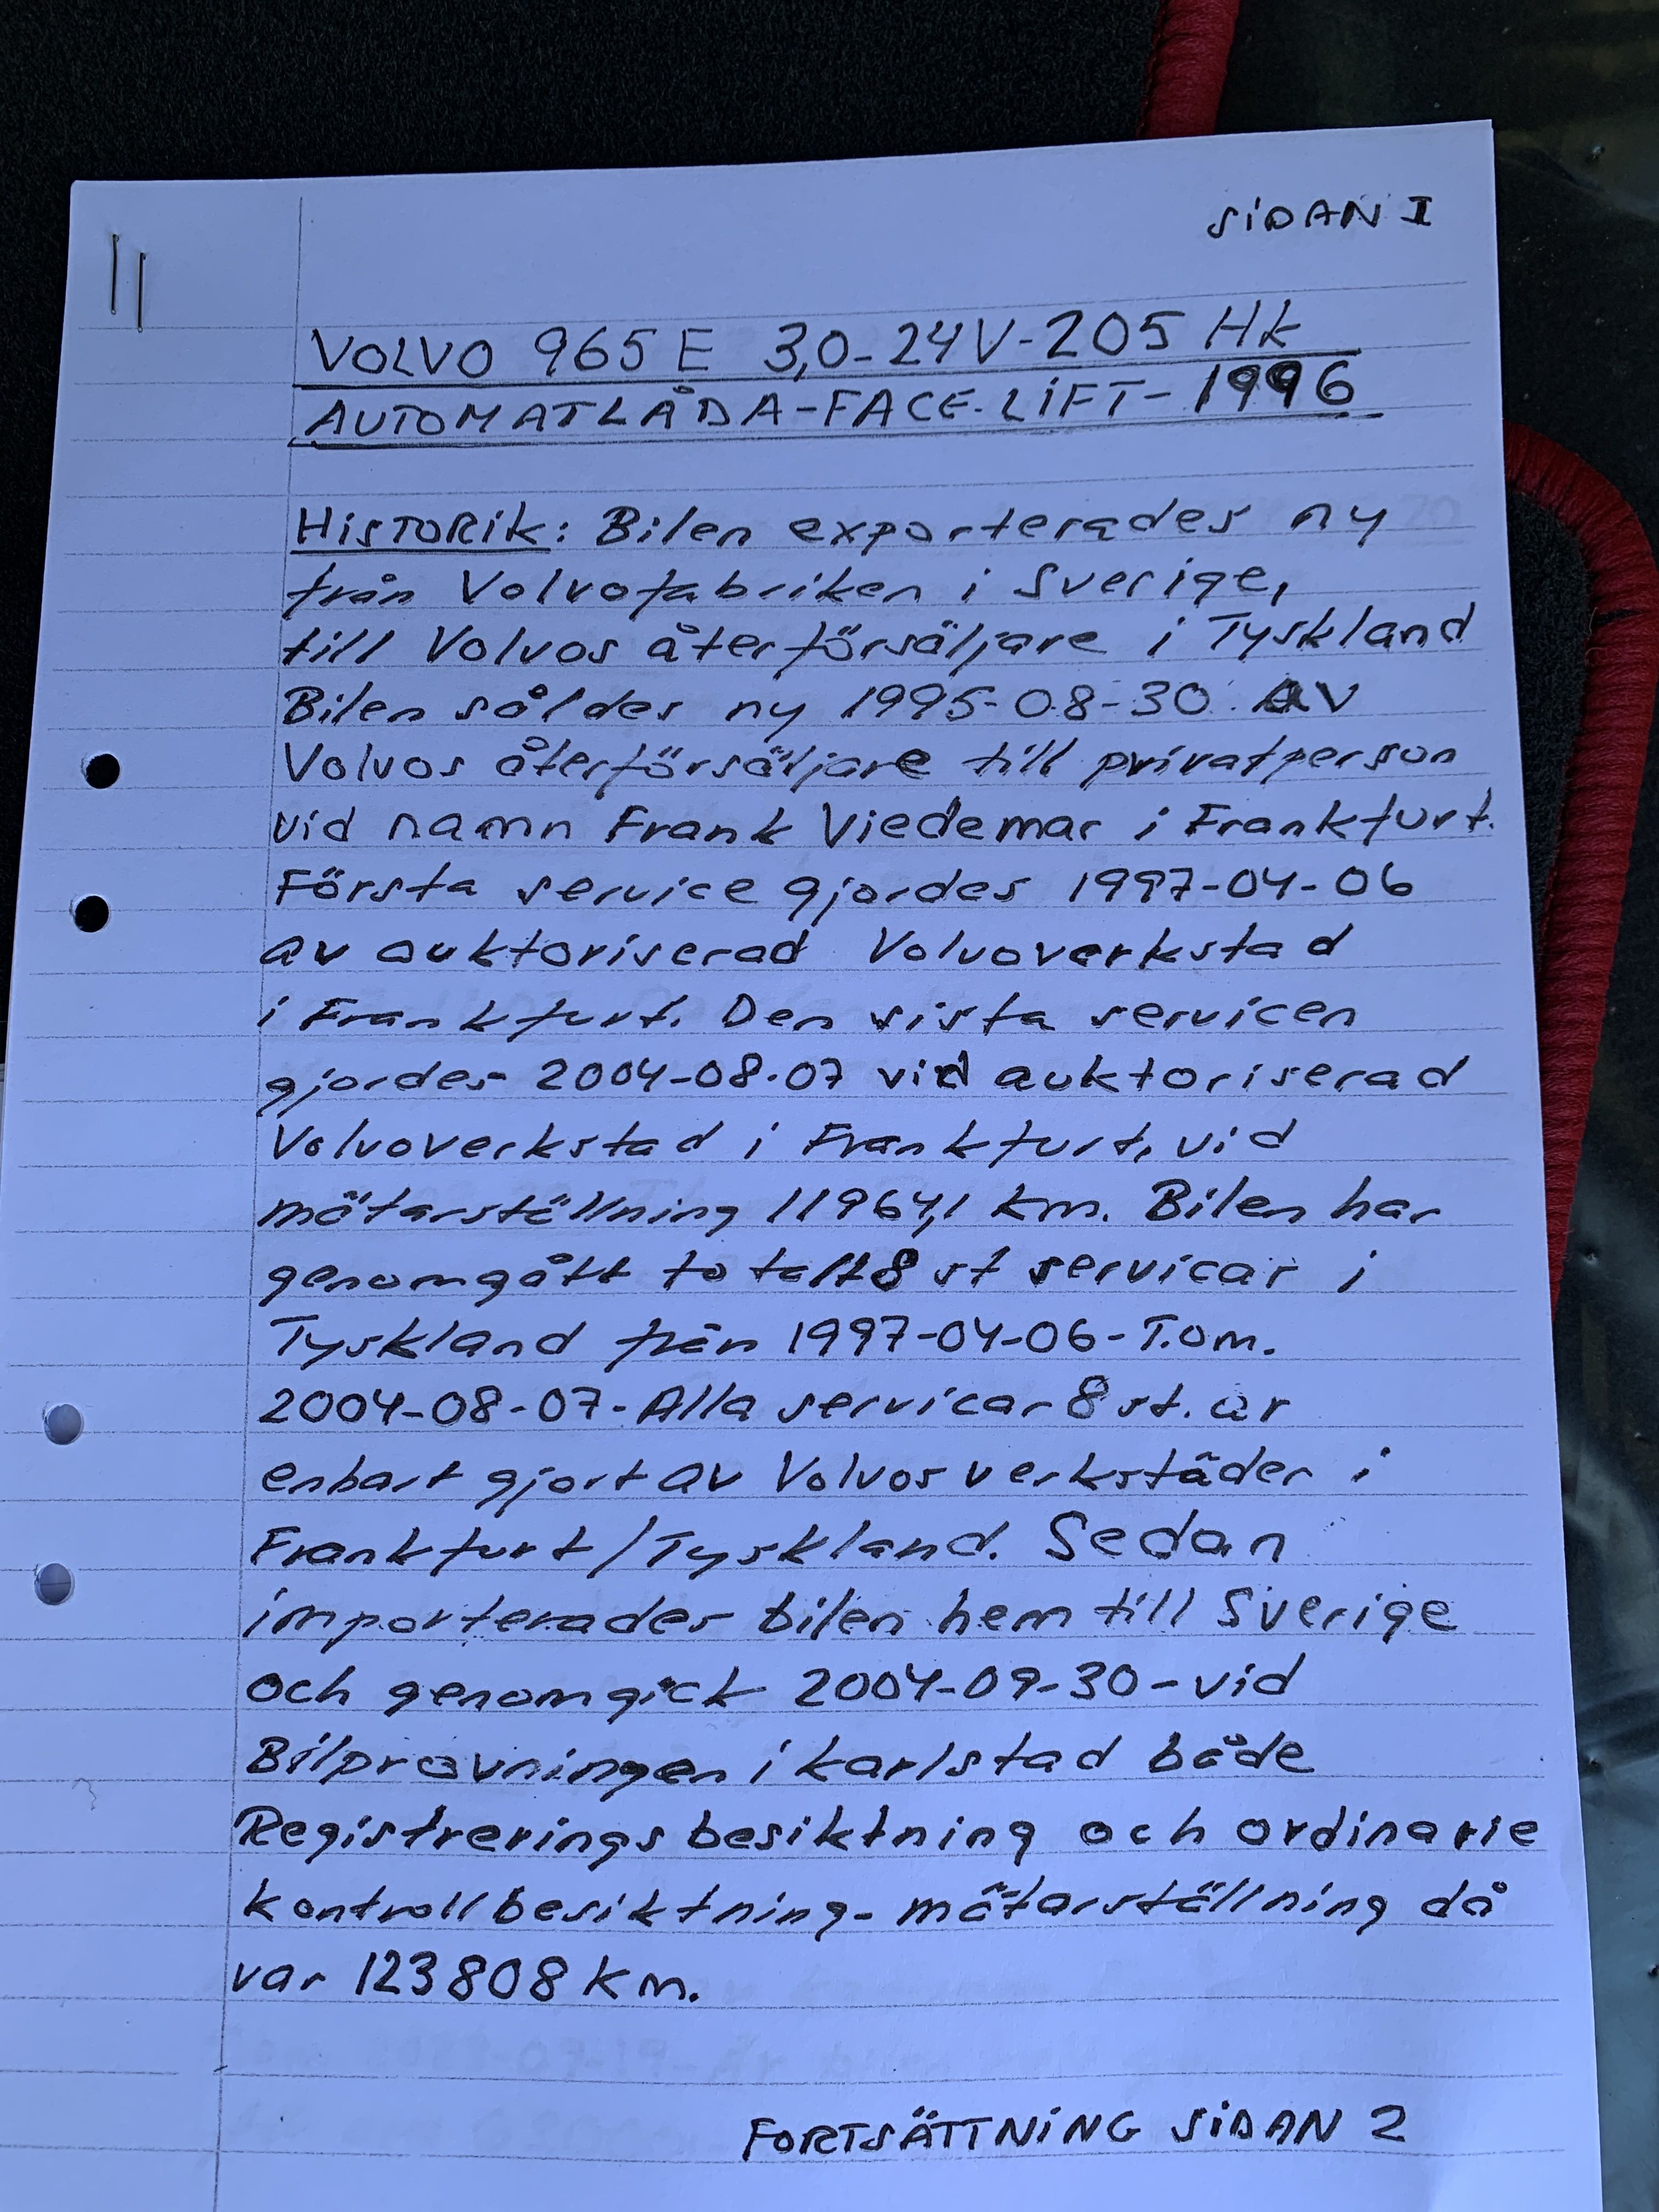 SIDAN I
VOLVO 965 E 3,0-24V-205 Hk
AUTOMATLÅDA-FACE-LIFT-1996
HISTORIK: Bilen exporterades ny
från Volvofabriken i Sverige,
till Volvos återförsäljare i Tyskland
Bilen såldes ny 1995-08-30 AV
Volvos återförsäljare till privatperson
vid namn Frank Viedemar i Frankfurt.
Första service gjordes 1997-04-06
av auktoriserad Volvoverkstad
i Frankfurt. Den sista servicen
gjordes 2004-08-07 vid auktoriserad
Volvoverkstad i Frankfurt, vid
mätarställning 11964,1 km. Bilen har
genomgått totalt 8 st servicar i
Tyskland från 1997-04-06-T.om.
2004-08-07-Alla servicar 8 st. är
enbart gjort av Volvos verkstäder i
Frankfurt/Tyskland. Sedan
importerades bilen hem till Sverige
och genomgick 2004-09-30-vid
Bilprovningen i karlstad både
Registreringsbesiktning och ordinarie
kontrollbesiktning-mätarställning då
var 123808 km.
FORTSÄTTNING SIDAN 2